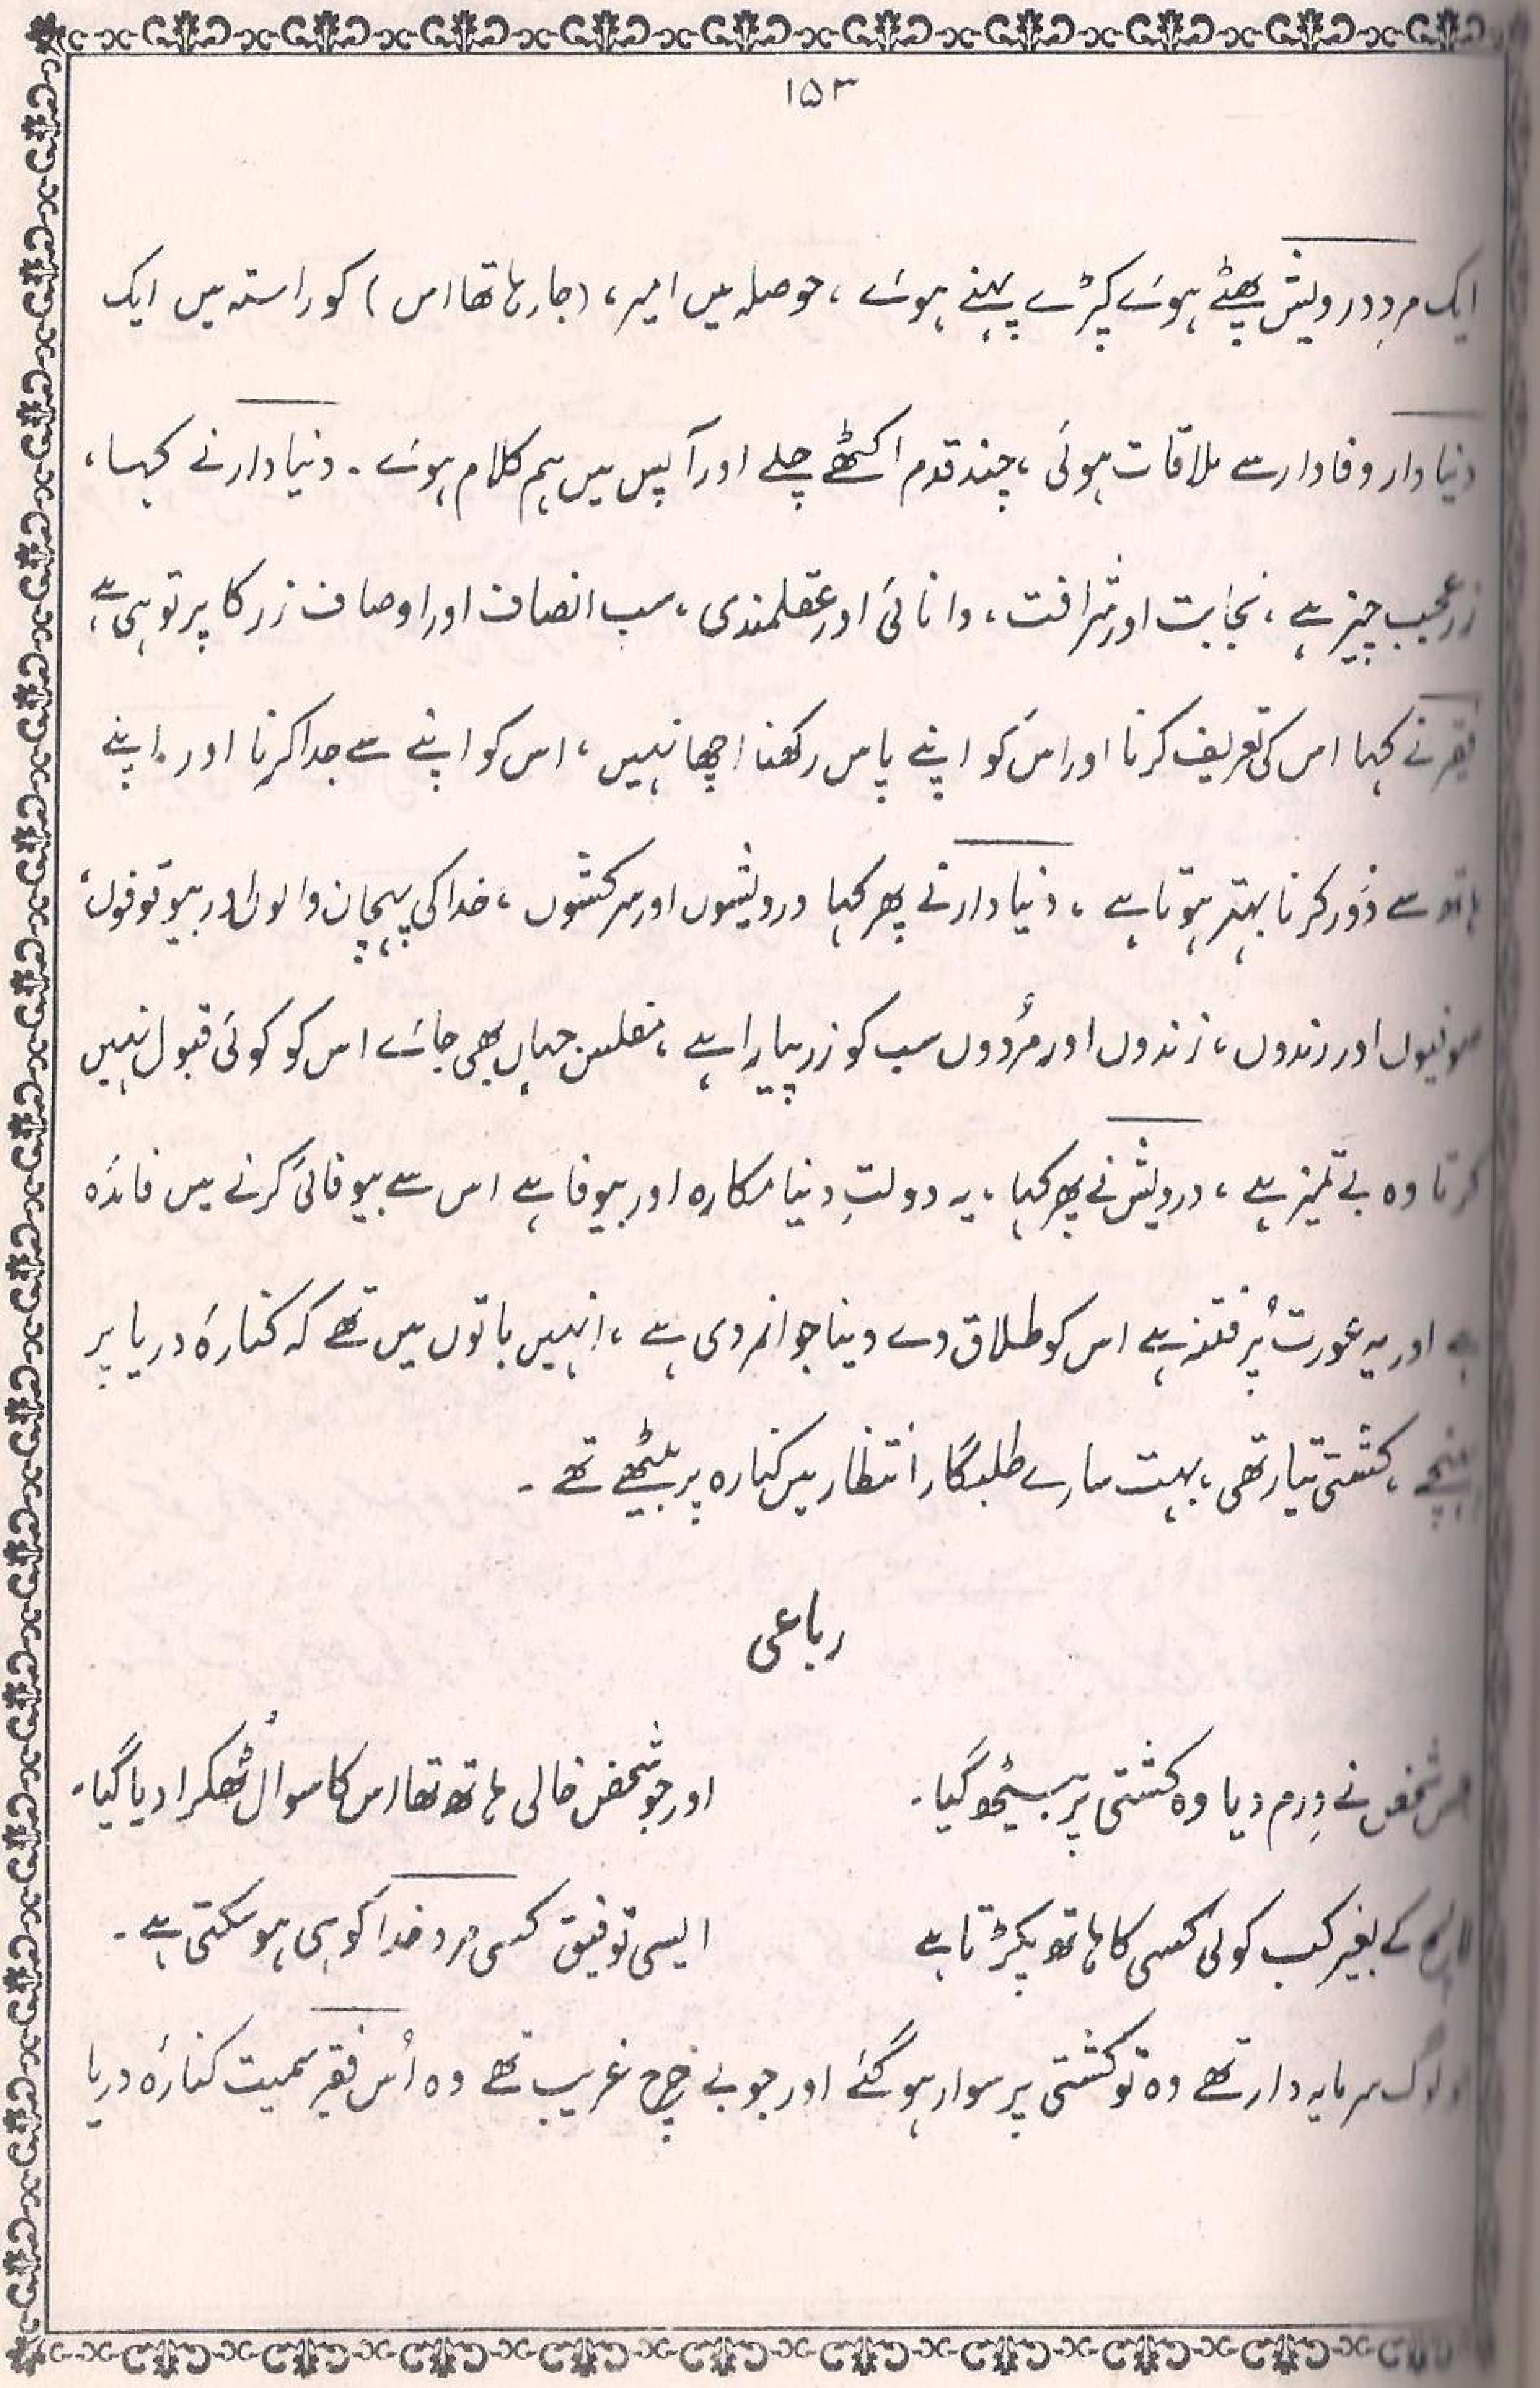 ۱۵۳
ایک مردِ درویش پھٹے ہوئے کپڑے پہنے ہوئے ، حوصلہ میں امیر ، (جا رہا تھا اس) کو راستہ میں ایک
دنیا دار وفادار سے ملاقات ہوئی ، چند قدم اکٹھے چلے اور آپس میں ہم کلام ہوئے ۔ دنیا دار نے کہا ،
زر عجب چیز ہے ، نجابت اور شرافت ، دانائی اور عقلمندی ، سب انصاف اور اوصاف زر کا پرتو ہی ہے
فقیر نے کہا اس کی تعریف کرنا اور اس کو اپنے پاس رکھنا اچھا نہیں ، اس کو اپنے سے جدا کرنا اور اپنے
ہاتھ سے دُور کرنا بہتر ہوتا ہے ، دنیا دار نے پھر کہا درویشوں اور سرکشوں ، خدا کی پہچان والوں اور بیوقوفوں ،
صوفیوں اور رندوں ، زندوں اور مُردوں سب کو زر پیارا ہے ، مفلس جہاں بھی جائے اس کو کوئی قبول نہیں
کرتا وہ بے تمیز ہے ، درویش نے پھر کہا ، یہ دولتِ دنیا مکارہ اور بیوفا ہے اس سے بیوفائی کرنے میں فائدہ
ہے اور یہ عورت پُر فتنہ ہے اس کو طلاق دے دینا جوانمردی ہے ، انہیں باتوں میں تھے کہ کنارۂ دریا پر
پہنچے ، کشتی تیار تھی ، بہت سارے طلبگار انتظار میں کنارہ پر بیٹھے تھے ۔
رباعی
جس شخص نے دِرم دیا وہ کشتی پر بیٹھ گیا ۔ اور جو شخص خالی ہاتھ تھا اس کا سوال ٹھکرا دیا گیا ۔
کے بغیر کب کوئی کسی کا ہاتھ پکڑتا ہے ایسی توفیق کسی مرد خدا کو ہی ہو سکتی ہے ۔
جو لوگ سرمایہ دار تھے وہ تو کشتی پر سوار ہو گئے اور جو بے خرچ غریب تھے وہ اُس فقیر سمیت کنارۂ دریا